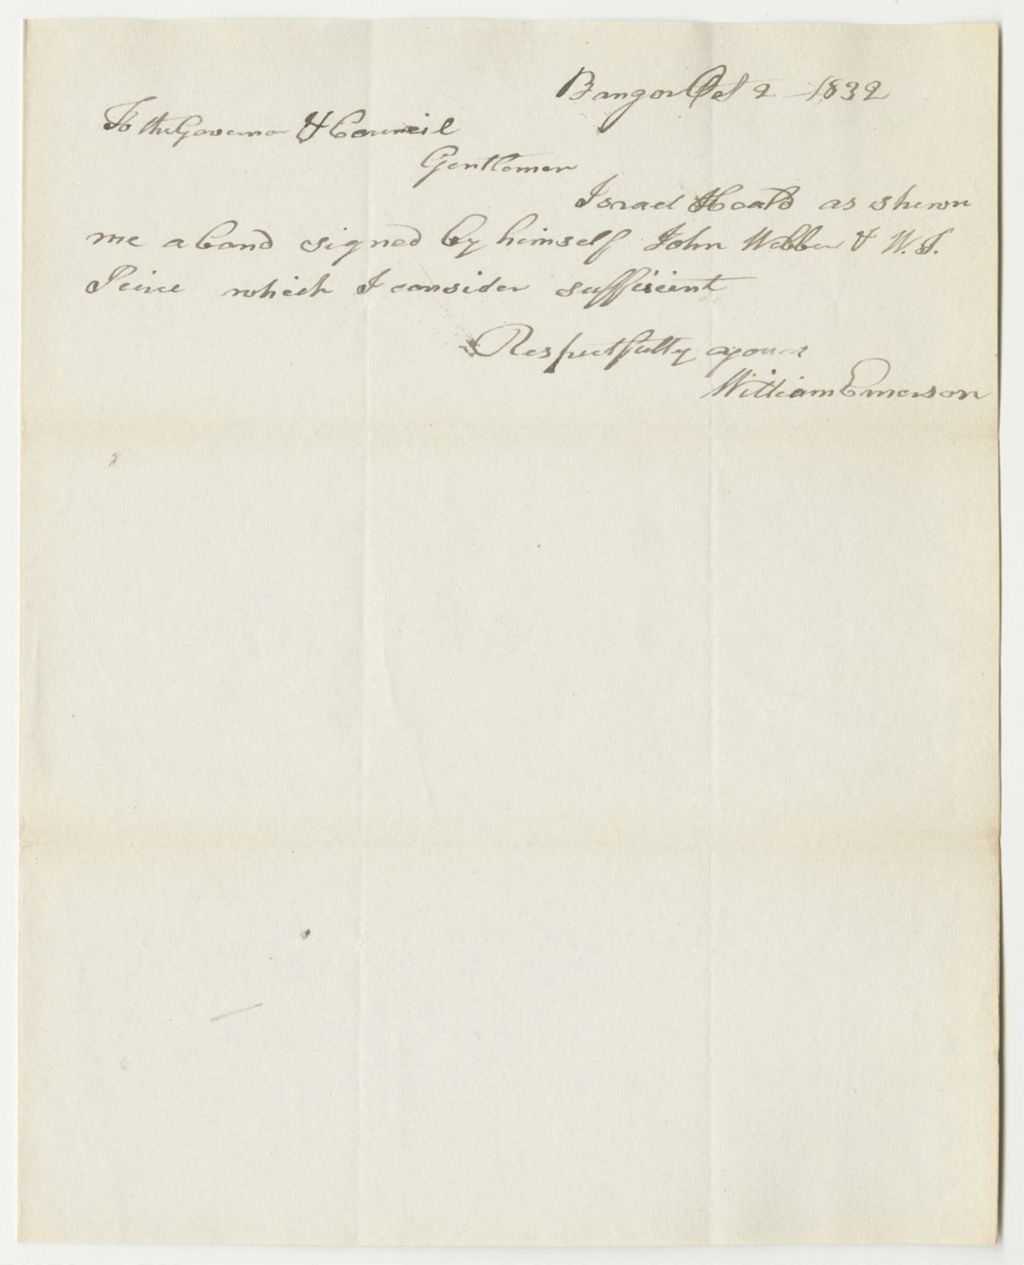 Bangor Oct 2 - 1832
To the Governor & Council
Gentlemen
Israel Heald as shewn
me a bond signed by himself John Webber & W. T.
Peirce which I consider sufficient
Respectfully yours
William Emerson